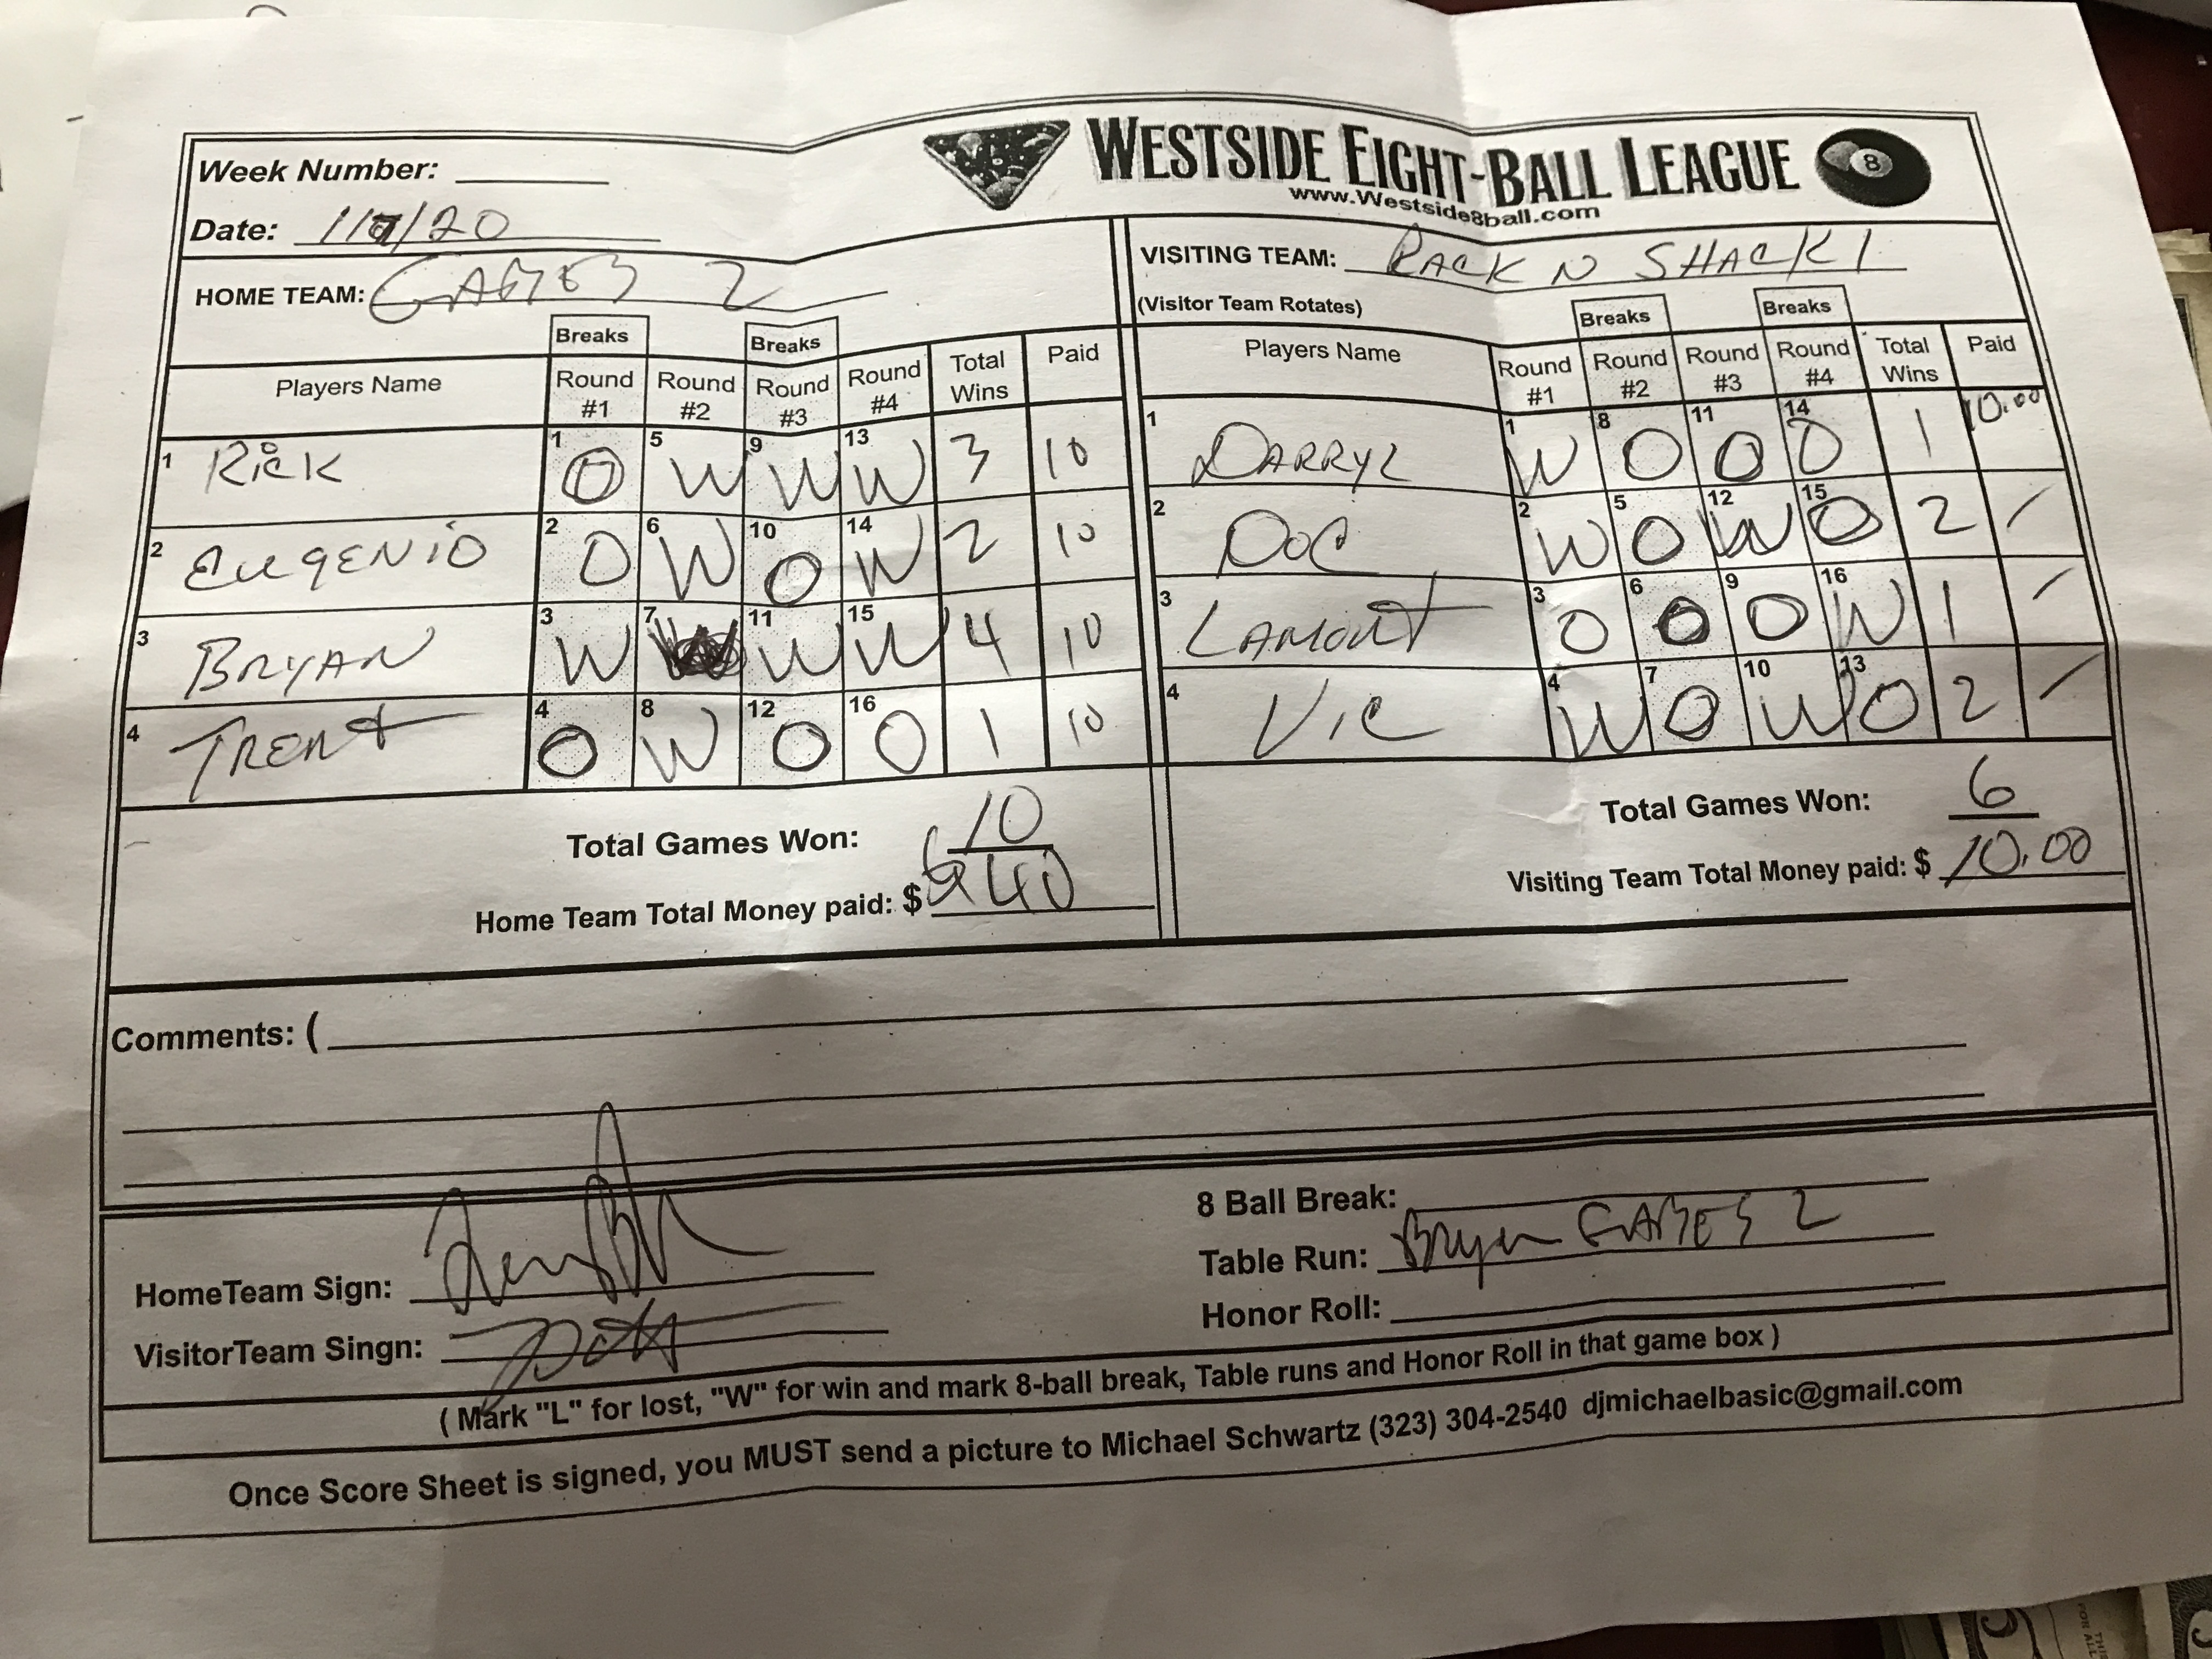 WESTSIDE EIGHT-BALL LEAGUE 8
www.Westside8ball.com
Week Number:
Date: 1/7/20
HOME TEAM: GABES 2
VISITING TEAM: RACK N SHACK 1
(Visitor Team Rotates)
Breaks Breaks
Players Name Round #1 Round #2 Round #3 Round #4 Total Wins Paid
1 Rick 1 O 5 W 9 W 13 W 3 10
2 EUGENIO 2 O 6 W 10 O 14 W 2 10
3 BRYAN 3 W 7 W 11 W 15 W 4 10
4 TRENT 4 O 8 W 12 O 16 O 1 10
Total Games Won: 10
Home Team Total Money paid: $ 40
Breaks Breaks
Players Name Round #1 Round #2 Round #3 Round #4 Total Wins Paid
1 DARRYL 1 W 8 O 11 O 14 O 1 10.00
2 DOC 2 W 5 O 12 W 15 O 2 /
3 LAMONT 3 O 6 O 9 O 16 W 1 /
4 VIC 4 W 7 O 10 W 13 O 2 /
Total Games Won: 6
Visiting Team Total Money paid: $ 10.00
Comments: (
HomeTeam Sign:
VisitorTeam Singn:
8 Ball Break:
Table Run: Bryan GABES 2
Honor Roll:
( Mark "L" for lost, "W" for win and mark 8-ball break, Table runs and Honor Roll in that game box )
Once Score Sheet is signed, you MUST send a picture to Michael Schwartz (323) 304-2540 djmichaelbasic@gmail.com